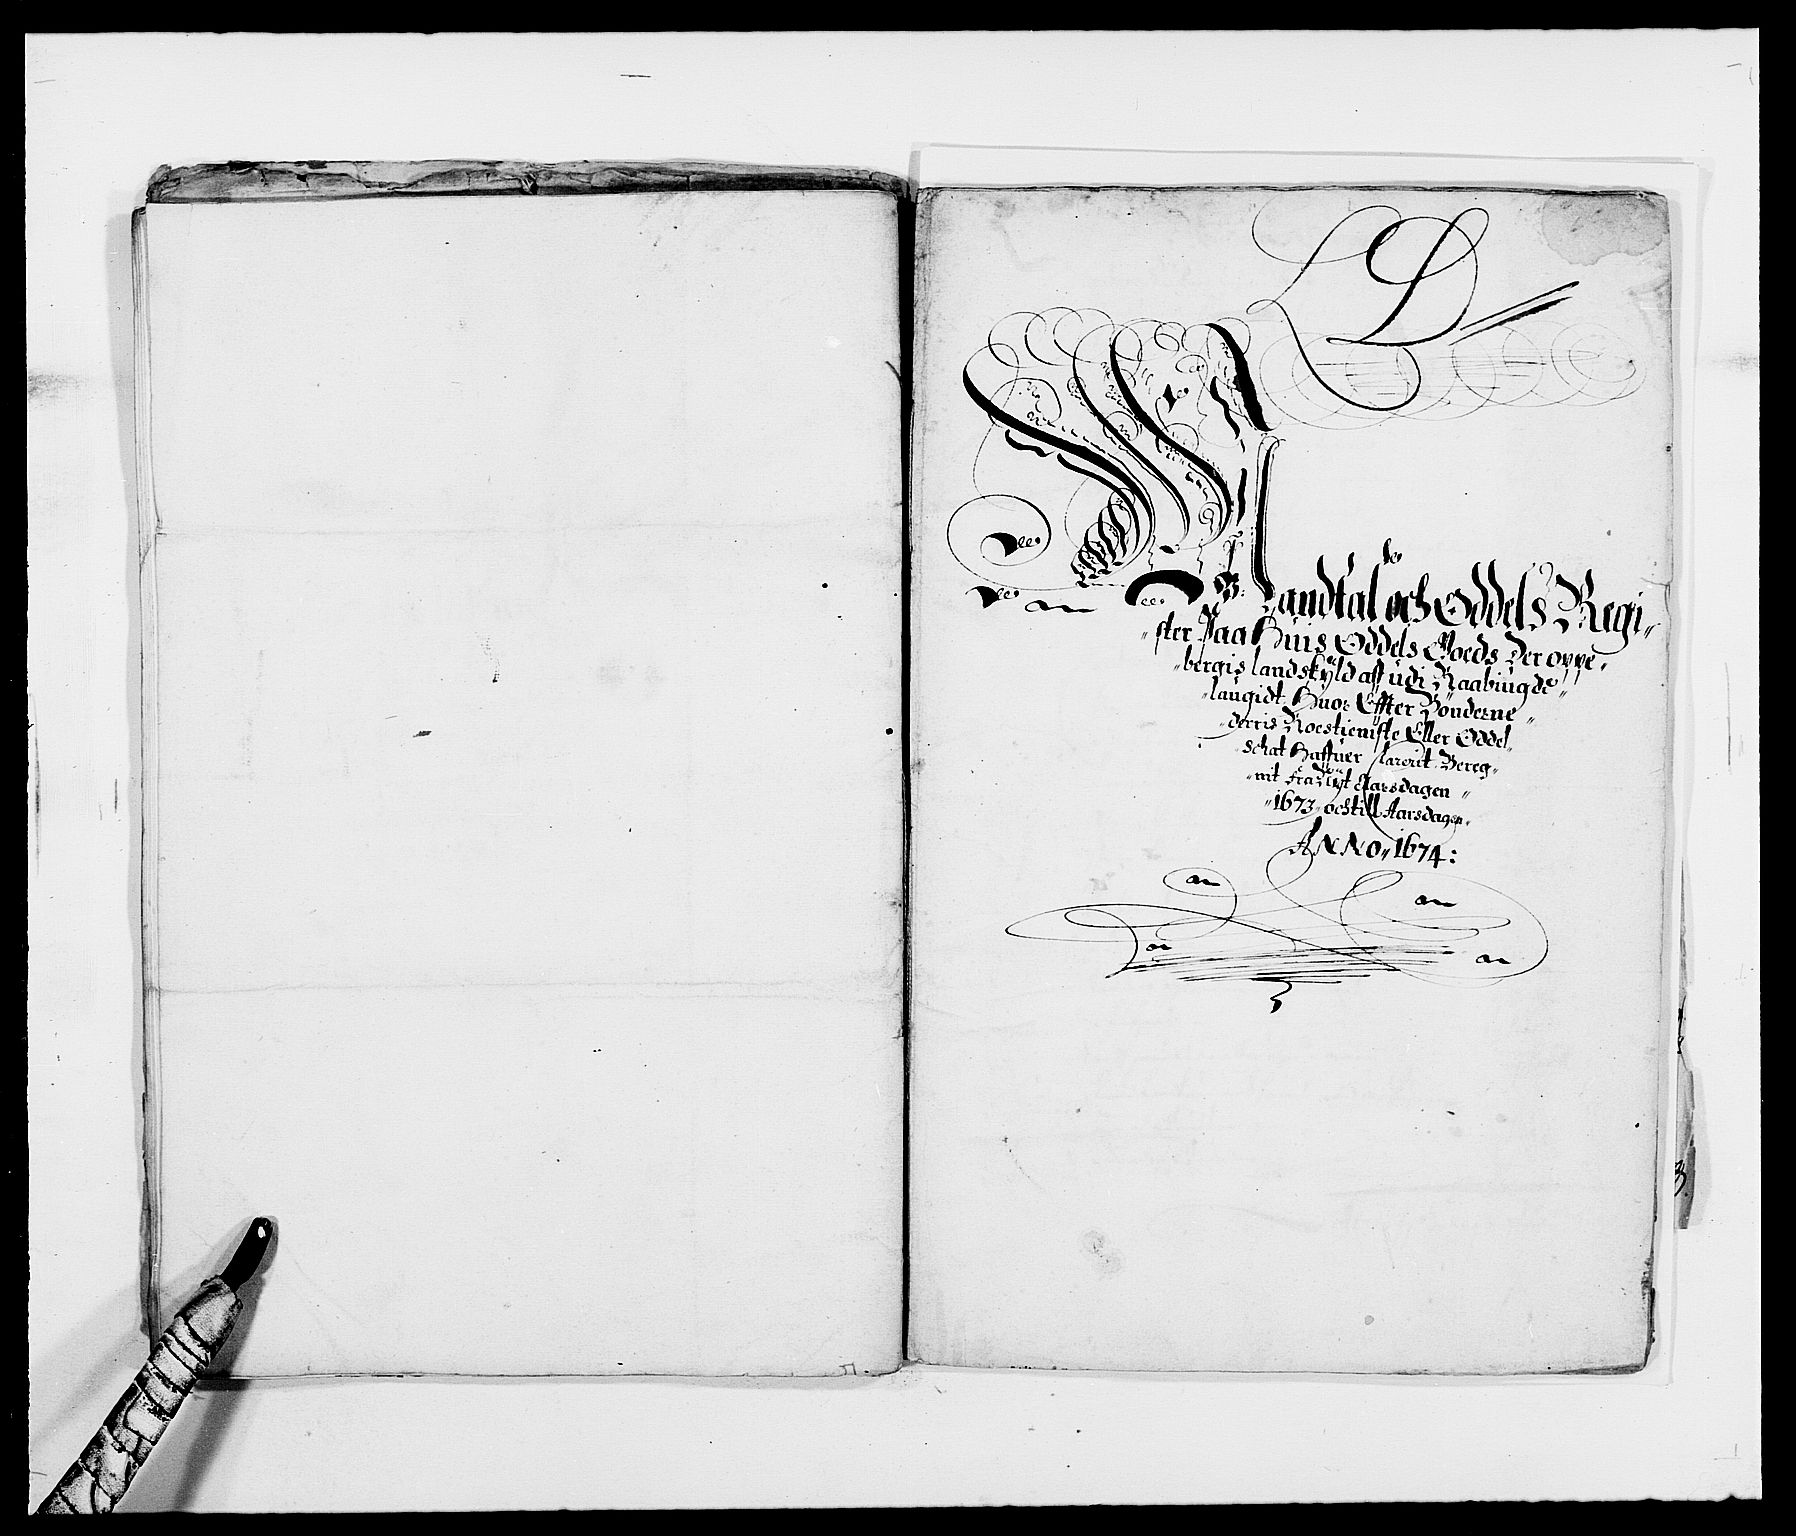 D
Mandtal och Oddels Regi„
„ster Paa Huis Oddels Goeds Der oppe„
„bergis landskÿld aff udi Raabiugde„
„laugidt. Huor Effter Bønderne„
„derris Roestieniste Eller Oddel„
schat Haffuer Clarerit. Bereg„
„nit fra Nyt Aarsdagen„
„1673„ och till Aarsdagen„
ANNO„ 1674: